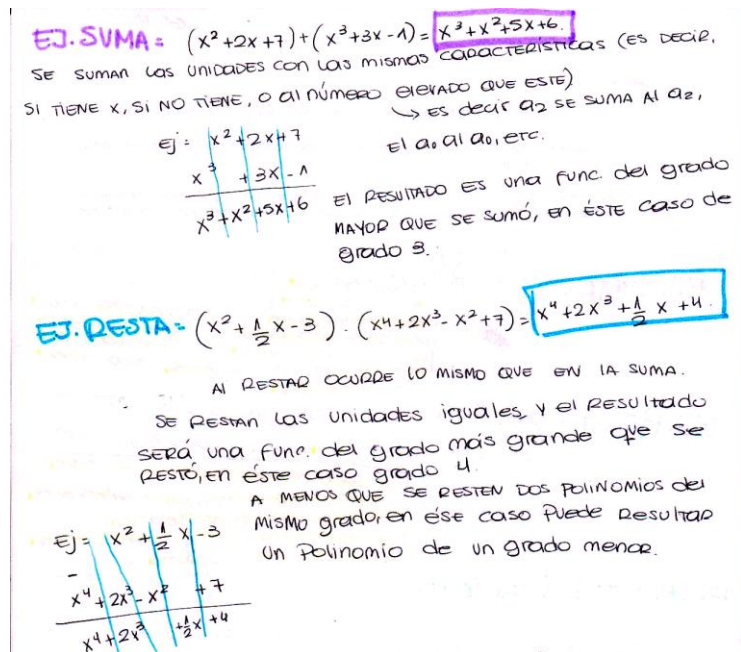 EJ. SUMA = (x² + 2x + 7) + (x³ + 3x - 1) = x³ + x² + 5x + 6.
SE SUMAN LAS UNIDADES CON LAS MISMAS CARACTERÍSTICAS (ES DECIR,
SI TIENE X, SI NO TIENE, O Al NÚMERO ELEVADO QUE ESTE)
↳ ES decir a₂ SE SUMA Al a₂,
El a₀ al a₀, ETC.
Ej: x² + 2x + 7
x³ + 3x - 1
x³ + x² + 5x + 6
El RESULTADO ES una func. del grado
MAYOR QUE SE SUMÓ, EN ÉSTE CASO de
grado 3.
EJ. RESTA = (x² + 1/2 x - 3) . (x⁴ + 2x³ - x² + 7) = x⁴ + 2x³ + 1/2 x + 4.
Al RESTAR OCURRE LO MISMO QUE EN LA SUMA.
SE RESTAN LAS UNIDADES IGUALES, Y el RESULTADO
SERÁ una FUNC. del grado más grande que se
RESTÓ, EN ÉSTE CASO grado 4.
A MENOS QUE SE RESTEN DOS POLINOMIOS del
MISMO grado, EN ÉSE CASO PUEDE RESULTAR
UN POLINOMIO DE UN GRADO MENOR.
Ej = x² + 1/2 x - 3
-
x⁴ + 2x³ - x² + 7
x⁴ + 2x³ + 1/2 x + 4